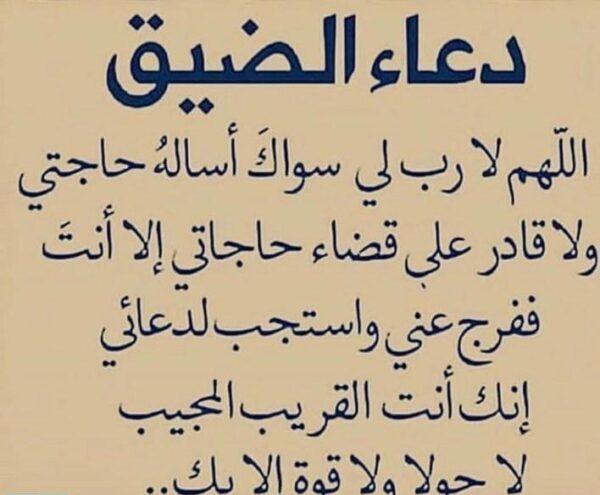 دعاء الضيق
اللّهم لا رب لي سواكَ أسالهُ حاجتي
ولا قادر على قضاء حاجاتي إلا أنتَ
ففرج عني واستجب لدعائي
إنك أنت القريب المجيب
لا حولا ولا قوة الا بك..